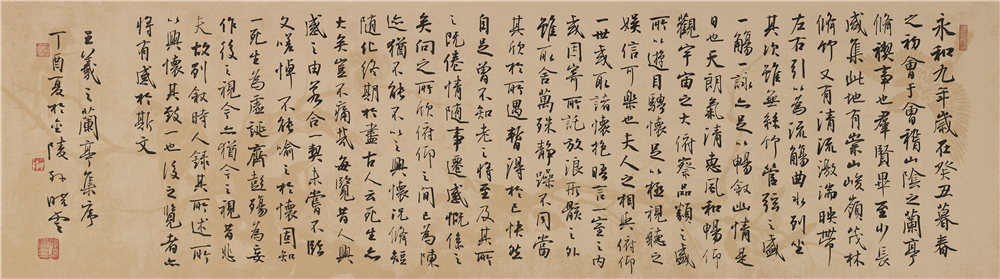 永和九年歲在癸丑暮春
之初會于會稽山陰之蘭亭
脩禊事也羣賢畢至少長
咸集此地有崇山峻嶺茂林
脩竹又有清流激湍映帶
左右引以為流觴曲水列坐
其次雖無絲竹管弦之盛
一觴一詠亦足以暢敘幽情是
日也天朗氣清惠風和暢仰
觀宇宙之大俯察品類之盛
所以遊目騁懷足以極視聽之
娛信可樂也夫人之相與俯仰
一世或取諸懷抱晤言一室之內
或因寄所託放浪形骸之外
雖取舍萬殊靜躁不同當
其欣於所遇暫得於己怏然
自足曾不知老之將至及其所
之既倦情隨事遷感慨係之
矣向之所欣俯仰之間已為陳
迹猶不能不以之興懷況脩短
隨化終期於盡古人云死生亦
大矣豈不痛哉每覽昔人興
感之由若合一契未嘗不臨
文嗟悼不能喻之於懷固知
一死生為虛誕齊彭殤為妄
作後之視今亦猶今之視昔悲
夫故列敘時人錄其所述所
以興懷其致一也後之覽者亦
將有感於斯文
王羲之蘭亭集序
丁酉夏於金陵孫曉雲